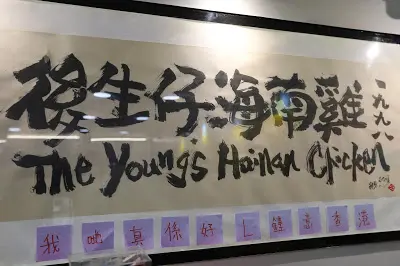 後生仔海南雞
一九九八
The Young's Hainan Chicken
我哋真係好L鍾意香港